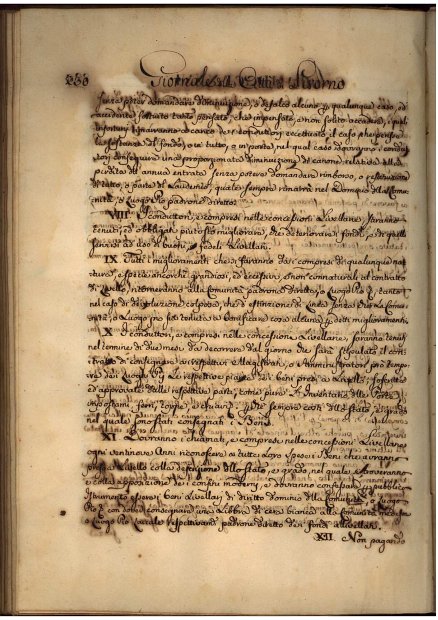 230
senza poter domandare diminuzione, o defalco alcuno p qualunque caso, ed
accidente fortuito tanto pensato, che impensato, e non solito accadere, i quali
infortuni saranno a carico de conduttori eccettuato il caso, che perisse
la sostanza del fondo, o in tutto, o in parte, nel qual caso i conduttori
conseguire una proporzionata diminuzione di canone, relativa alla
perdita di annua entrata senza potere domandare rimborso, o restituzione
di tutto, o parte di Laudemio, quale sempre rimarrà nel Dominio della Comu-
nità, o Luogo Pio padrone diretto.
VIII. I conduttori, e compresi nelle concessioni Livellarie, saranno
tenuti, ed obbligati piuttosto migliorare, che deteriorare i fondi, e di quelli
servirsi ad uso di buoni, e fedeli Livellari.
IX Tutti i miglioramenti che si faranno dai compresi di qualunque na-
tura, e specie, ancorchè grandiosi, ed eccessivi, e non connaturali al contratto
di Livello, ritorneranno alla Comunità padrona diretta, o Luogo Pio, e tanto
nel caso di devoluzione colposa, che d'estinzione di Linea senza che la Comu-
nità, o Luogo Pio sia tenuta a bonificare cosa alcuna p detti miglioramenti
X I conduttori, e compresi nelle concessioni Livellarie, saranno tenuti
nel termine di due mesi da decorrere dal giorno che sarà stipulato il con-
tratto di consegnare ai respettivi Magistrati, o Amministratori pro tempo-
re dei Luoghi Pii le respettive piante dei beni presi a Livello,
ed approvate dalle respettive parti, come pure L'Inventario delle Porte,
ferri, toppe, e chiavi, p che sempre costi dello stato, e grado
nel quale sono stati consegnati i Beni.
XI. Dovranno i chiamati, e compresi nelle concessioni Livellarie
ogni ventinove Anni riconoscere a tutte loro spese i Beni che avranno
presi a Livello colla descrizione dello stato, e grado, nel quale
e colla apposizione de i confini moderni, e dovranno confessare p pubblico
Istrumento esser beni Livellari di diretto dominio della Comunità, o Luogo
Pio, e con dover consegnare una Libbra di cera bianca alla Comunità medesima
o Luogo Pio Laicale respettivamente padrone diretto dei fondi Livellari
XII. Non pagando